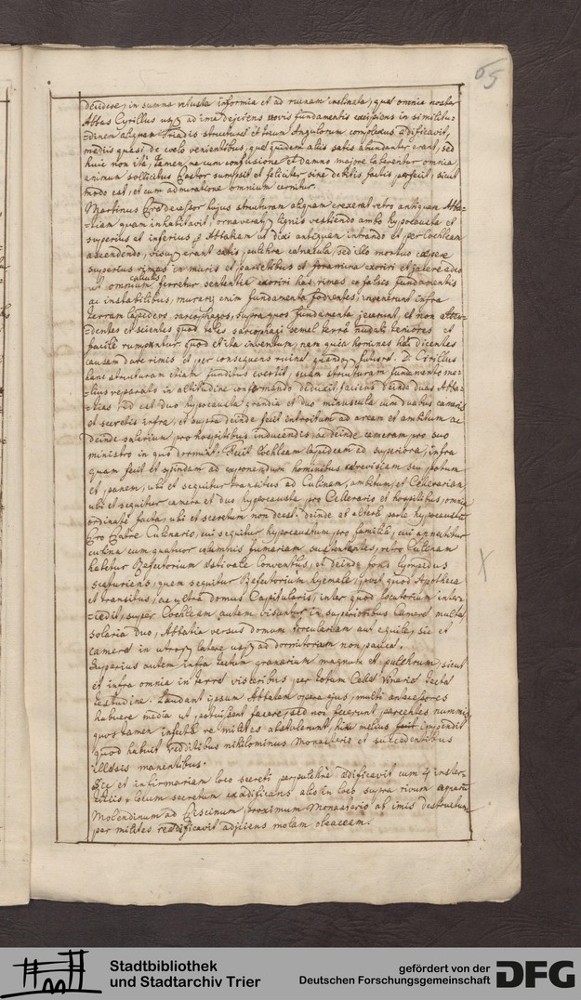 65
decidere, in summa vetusta informia et ad ruinam inclinata, quæ omnia noster
Abbas Cyrillus usq ad ima dejectens novis fundamentis excisionis in similitu-
dinem aliquam Triadis structuræ et trium Angulorum complexus ædificavit,
medijs quasi de cœlo venientibus, quæ quidem alijs satis abundanter erant, sed
huic non ita, tamen, ne cum confusione et damno majore laterentur omnia,
animum sollicitus Pastor sumpsit et feliciter sine debitis factis perfecit, sicut
modo est, et cum admiratione omnium cernitur.
Martinus Prædecessor hujus structuram aliquam erexerat retro antiquam Abba-
tiam quam inhabitavit, ornaverat lignis vestiendo ambo hypocausta et
superius et inferius, Abbatiam ut dixi antiquam intrando et per Cochleam
ascendendo, visuq erant satis pulchra cœnacula, sed illo mortuo cœpere
superius rimæ in muris et parietibus et foramina exoriri et patere adeo
ut omnium ferretur sententia exoriri has rimas ex falsis fundamentis
ac instabilibus, murarij enim fundamenta fodientes, invenerunt infra
terram lapideos sarcophagos, supra quos fundamenta jecerunt, et non atten-
dentes et scientes quod tales sarcophagi semel terra nudati teneriores et
facile rumpantur quod et ita inventum,
causam date rimis et per consequens ruinæ quandoq futuræ. D. Cyrillus
hanc structuram etiam funditus evertit, suam structuram fundamento me-
lius reparato in altitudine conformando deduxit, faciens deinde duas Abba-
tias, id est duo hypocausta grandia et duo minuscula cum duabus cameris
et secretis infra, et supra deinde fecit introitum ad aream et ambitum ac
deinde salarium pro hospitibus inducendis, ac deinde cameram pro suo
ministro in quo dormit. Fecit Cochleam lapideam ad superiora, infra
quam fecit ad exponendum hominibus cerevisiam, seu potum
et panem, ubi et sequitur transitus ad Culinam, ambitum, et Cellerariam,
ubi et sequitur camera et duo hypocausta, pro Cellerario et hospitibus, omnia
ordinate facta, ubi et secretum non deest. deinde ex altera parte hypocaustum
Pro Fratre Culinario, cui sequitur hypocaustum pro familia, cui annectitur
culina cum quatuor columnis fumarium sustentantes, retro Culinam
habetur Refectorium æstivale Conventus, et deinde fons lympidus
scaturiens, quem sequitur Refectorium hyemale, post quod Apotheca
et transitus, ac ultra domus Capitularis, inter quod locutorium inter-
cedit, super Cochleam autem visuntur in superioribus Cameræ multæ
solaria duo, Abbatia versus domum torculariam aut equile, sic et
cameræ in utroq latere usq ad dormitorium non paucæ.
Superius autem infra tectum granarium magnum et pulchrum, sicut
et infra omnia in terræ visceribus per totum Cella Vinaria tecta
testudine. Laudant ipsum Abbatem opera ejus, multi antecessores
habuere media ut potuissent facere, sed non fecerunt, parcentes nummis
quos tamen infesti milites abstulerunt, hic melius fecit impendit
quod habuit redditibus nihilominus Monasterio et succedentibus
illæsis manentibus.
Sic et infirmariam loco secreti perpulchre ædificavit cum
totum secretum exædificatis alio in loco supra rivum
Molendinum ad Piscinum proximum Monasterio ab imis destructum
per milites reædificavit adjiciens molam oleaceam.
X
Stadtbibliothek
und Stadtarchiv Trier
gefördert von der
Deutschen Forschungsgemeinschaft
DFG